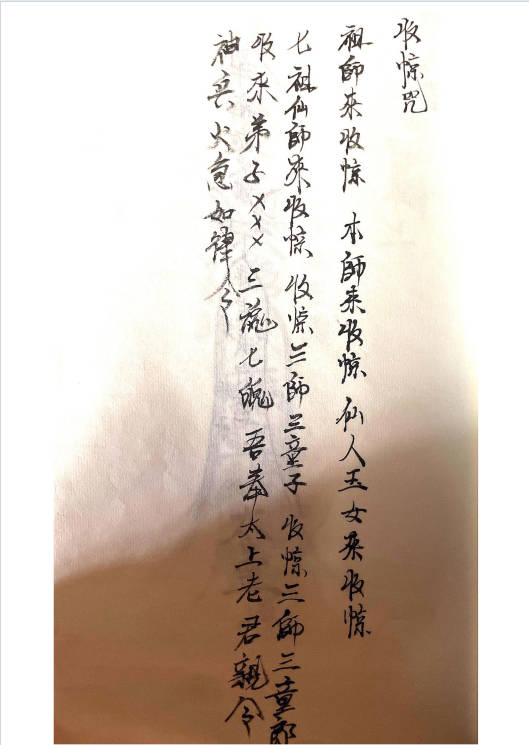 收惊咒
祖師来收惊 本師来收惊 仙人玉女来收惊
七祖仙師来收惊 收惊三師三童子 收惊三師三童郎
收来弟子××× 三魂七魄 吾奉太上老君親令
神兵火急如律令